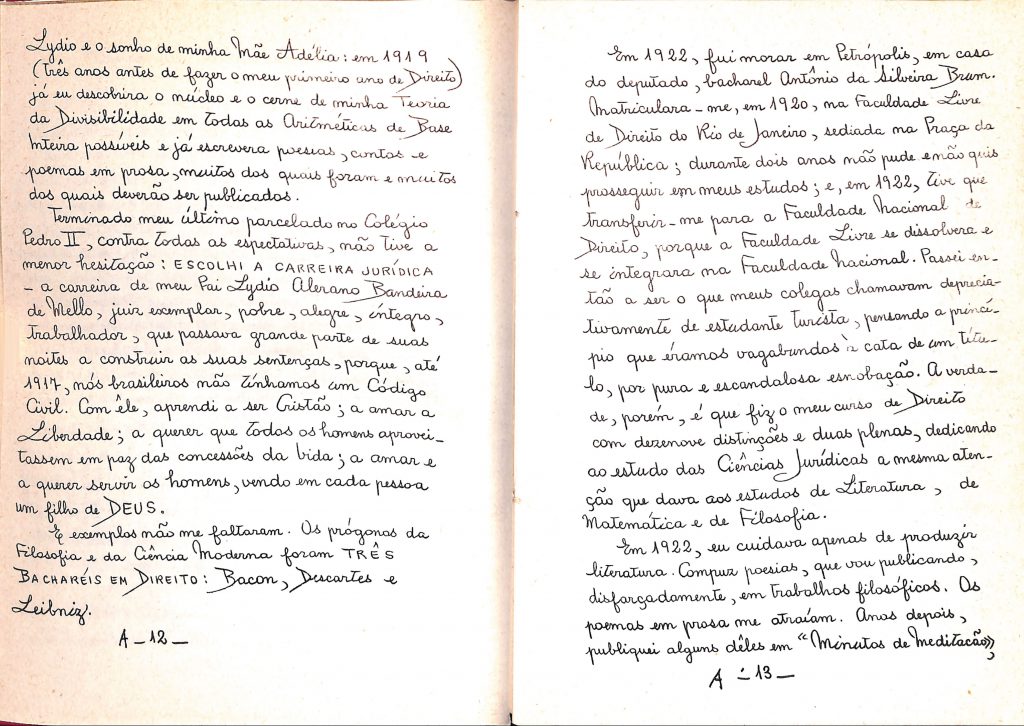 Lydio e o sonho de minha Mãe Adélia: em 1919
(três anos antes de fazer o meu primeiro ano de Direito)
já eu descobrira o núcleo e o cerne de minha Teoria
da Divisibilidade em todas as Aritméticas de Base
Inteira possíveis e já escrevera poesias, contos e
poemas em prosa, muitos dos quais foram e muitos
dos quais deverão ser publicados.
Terminado meu último parcelado no Colégio
Pedro II, contra todas as espectativas, não tive a
menor hesitação: ESCOLHI A CARREIRA JURÍDICA
– a carreira de meu Pai Lydio Alerano Bandeira
de Mello, juiz exemplar, pobre, alegre, íntegro,
trabalhador, que passava grande parte de suas
noites a construir as suas sentenças, porque, até
1917, nós brasileiros não tínhamos um Código
Civil. Com êle, aprendi a ser Cristão; a amar a
Liberdade; a querer que todos os homens aprovei-
tassem em paz das concessões da Vida; a amar e
a querer servir os homens, vendo em cada pessoa
um filho de DEUS.
E exemplos não me faltaram. Os prógonos da
Filosofia e da Ciência Moderna foram TRÊS
BACHARÉIS EM DIREITO: Bacon, Descartes e
Leibniz.
A – 12 –
Em 1922, fui morar em Petrópolis, em casa
do deputado, bacharel Antônio da Silveira Brum.
Matriculara-me, em 1920, na Faculdade Livre
de Direito do Rio de Janeiro, sediada na Praça da
República; durante dois anos não pude e não quis
prosseguir em meus estudos; e, em 1922, tive que
transferir-me para a Faculdade Nacional de
Direito, porque a Faculdade Livre se dissolvera e
se integrara na Faculdade Nacional. Passei en-
tão a ser o que meus colegas chamavam deprecia-
tivamente de estudante turista, pensando a princí-
pio que éramos vagabundos à cata de um títu-
lo, por pura e escandalosa esnobação. A verda-
de, porém, é que fiz o meu curso de Direito
com dezenove distinções e duas plenas, dedicando
ao estudo das Ciências Jurídicas a mesma aten-
ção que dava aos estudos de Literatura, de
Matemática e de Filosofia.
Em 1922, eu cuidava apenas de produzir
literatura. Compuz poesias, que vou publicando,
disfarçadamente, em trabalhos filosóficos. Os
poemas em prosa me atraíam. Anos depois,
publiquei alguns dêles em "Minutos de Meditação",
A – 13 –